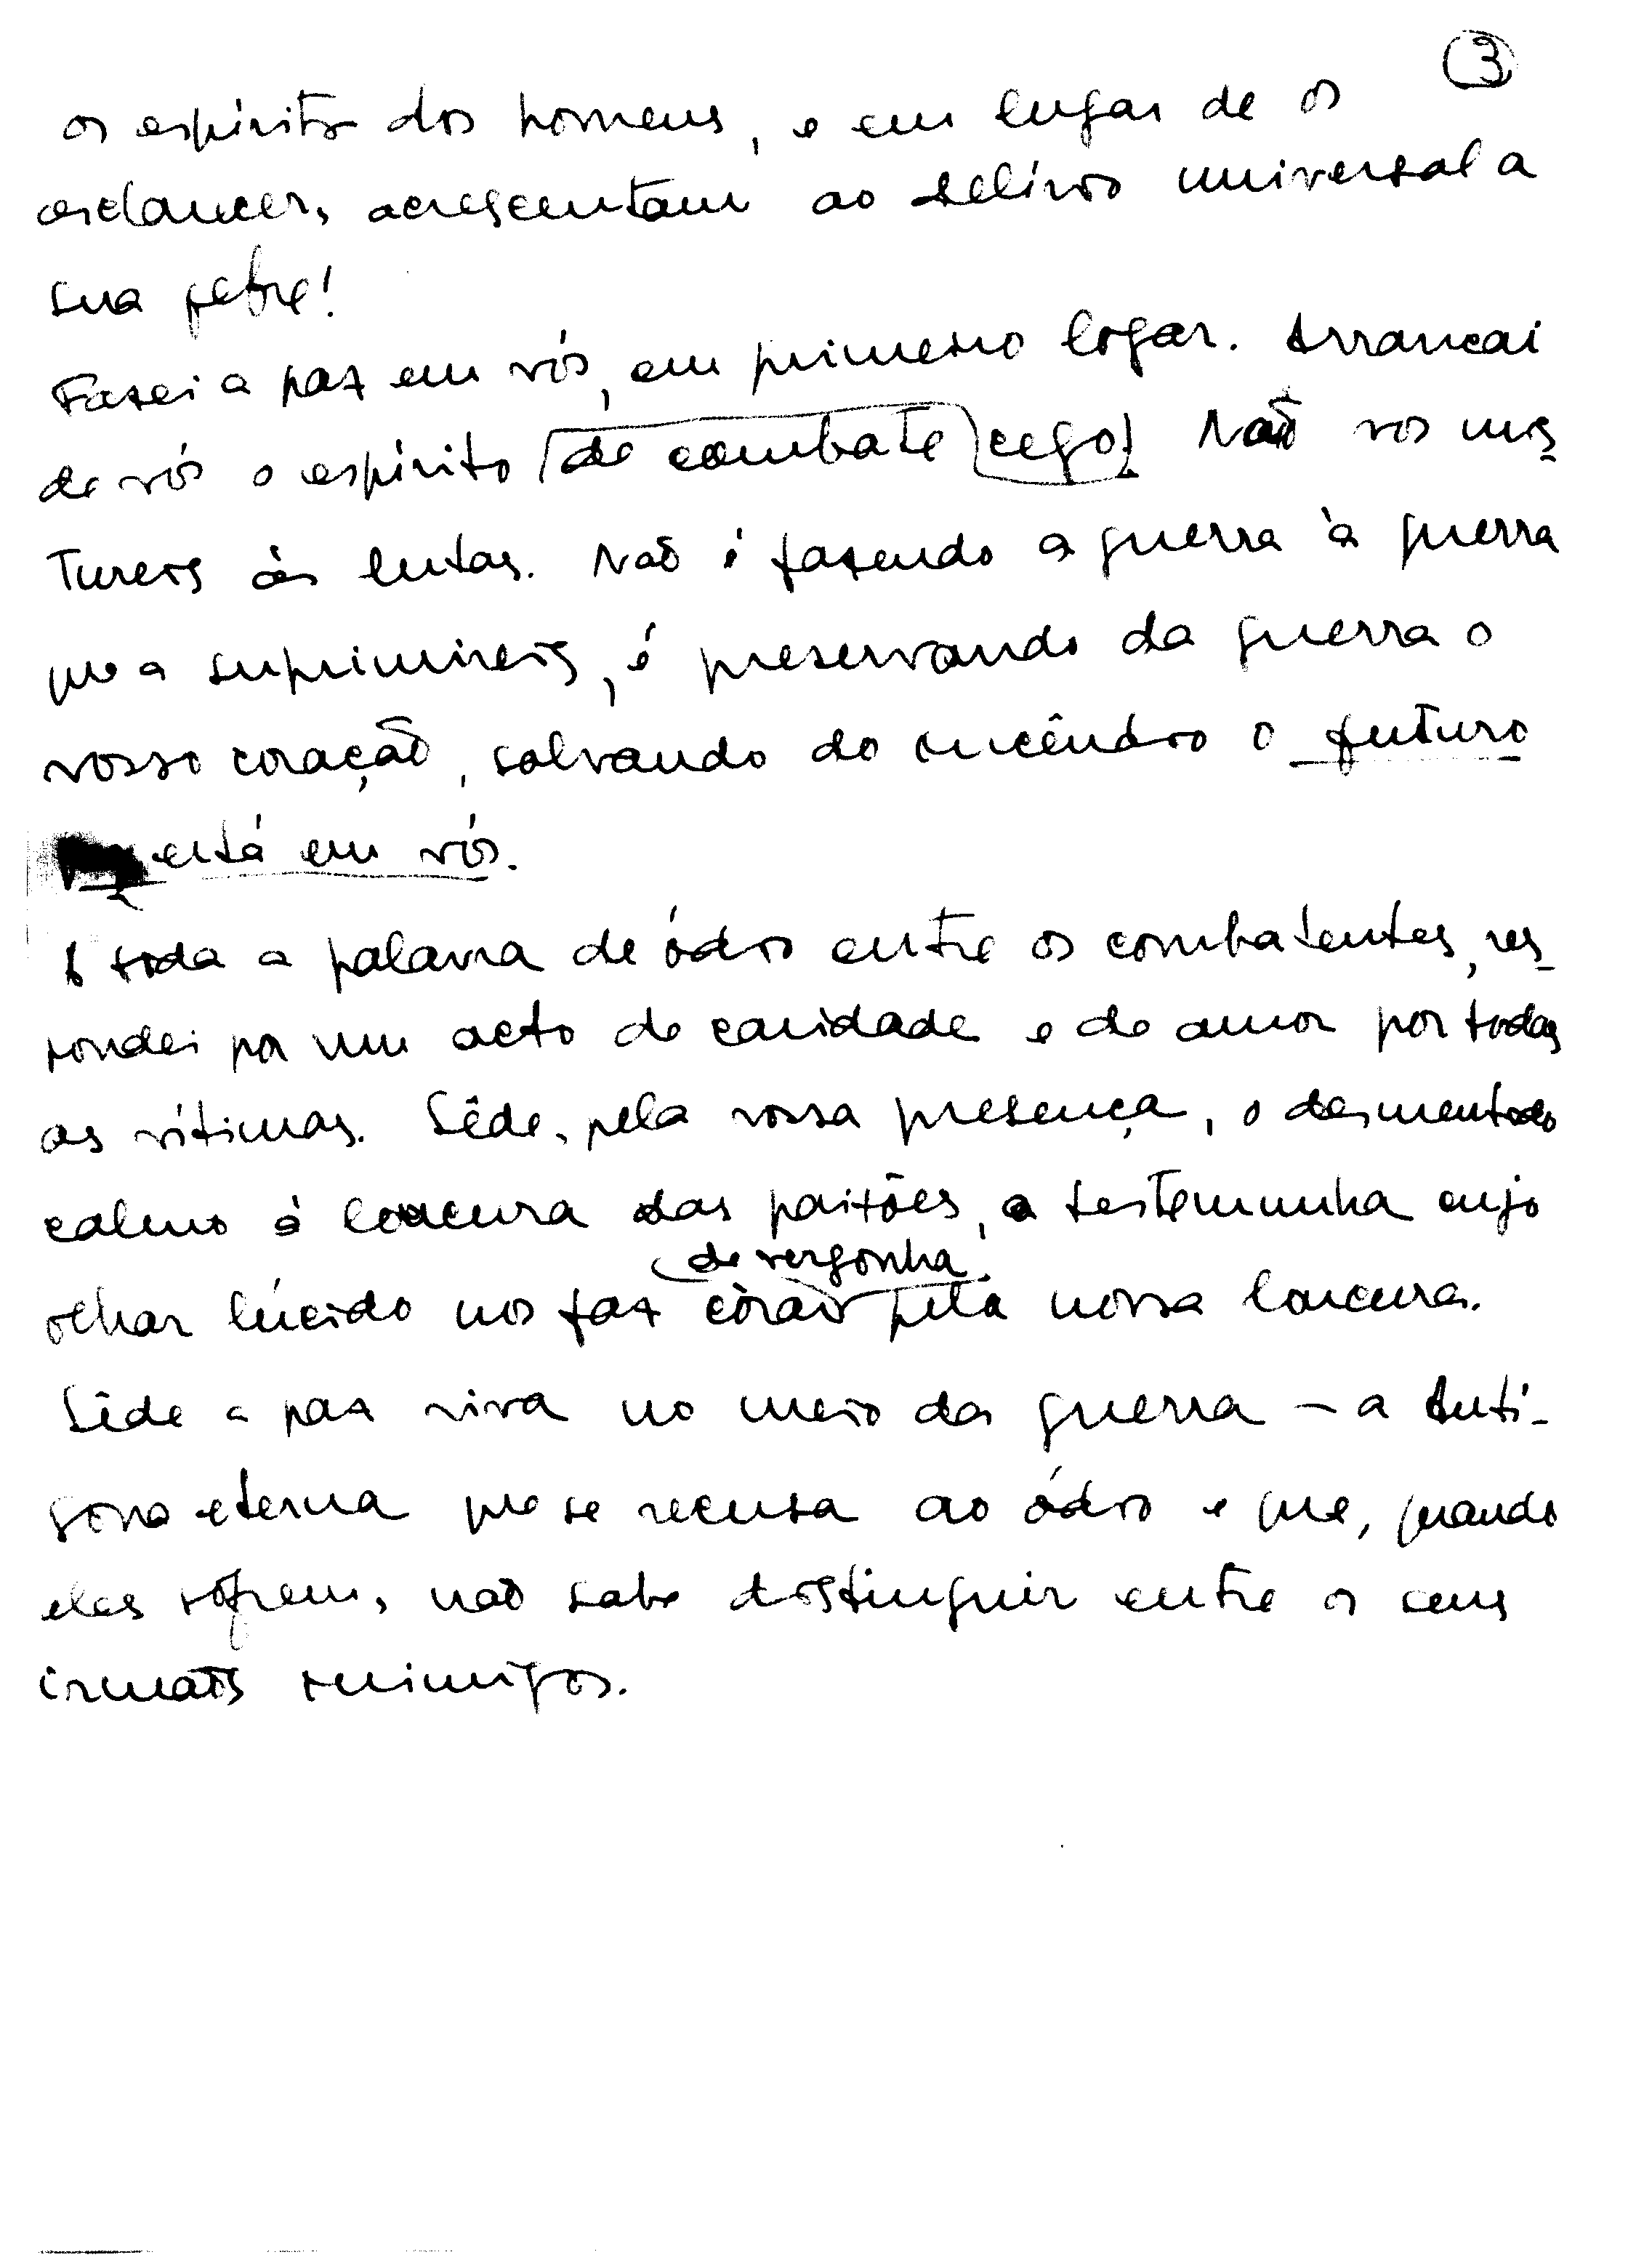 3
os espíritos dos homens, e em lugar de os
esclarecer, acrescentam ao delírio universal a
sua febre!
Fazei a paz em vós, em primeiro logar. Arrancai
de vós o espírito de combate cego! Não vos mis-
tureis às lutas. Não é fazendo a guerra à guerra
que a suprimireis, é preservando da guerra o
vosso coração, salvando do incêndio o futuro
está em vós.
A toda a palavra de ódio entre os combatentes, res-
pondei por um acto de caridade e de amor por todas
as vítimas. Sêde, pela vossa presença, o desmentido
calmo à loucura das paixões, a testemunha cujo
de vergonha
olhar lúcido nos faz córar pela nossa loucura.
Sêde a paz viva no meio da guerra – a Antí-
gona eterna que se recusa ao ódio e que, quando
eles sofrem, não sabe distinguir entre os seus
irmãos inimigos.